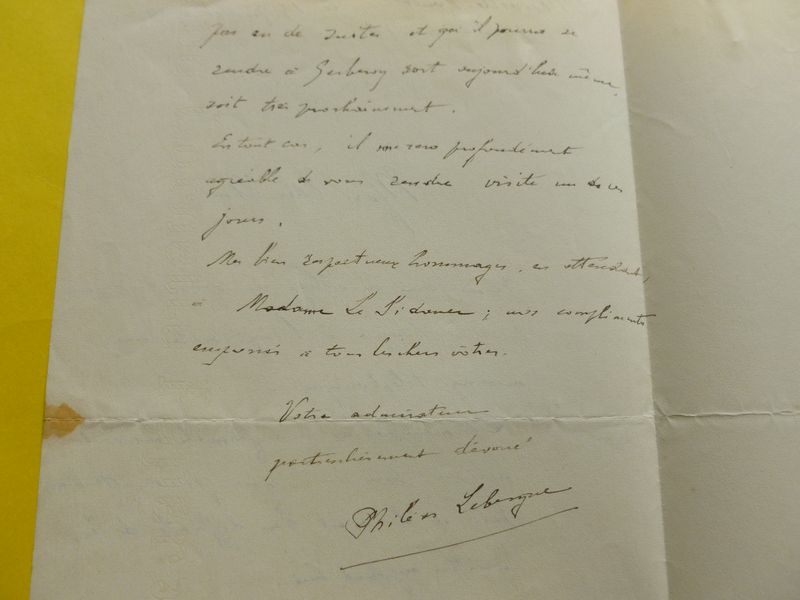 pas en de suites et qu'il pourra se
rendre à Gerberoy soit aujourd'hui même,
soit très prochainement.
En tout cas, il me sera profondément
agréable de vous rendre visite un de ces
jours.
Mes bien respectueux hommages, en attendant,
à Madame Le Sidaner ; mes compliments
empressés à tous les chers vôtres.
Votre admirateur
particulièrement dévoué
Philéas Lebesgue